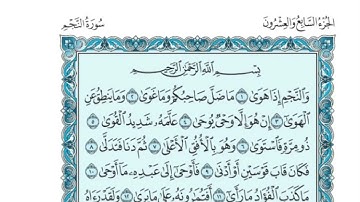 الجزء السابع والعشرون
سورة النجم
بِسْمِ اللَّهِ الرَّحْمَٰنِ الرَّحِيمِ
وَالنَّجْمِ إِذَا هَوَىٰ ١ مَا ضَلَّ صَاحِبُكُمْ وَمَا غَوَىٰ ٢ وَمَا يَنطِقُ عَنِ
الْهَوَىٰ ٣ إِنْ هُوَ إِلَّا وَحْيٌ يُوحَىٰ ٤ عَلَّمَهُ شَدِيدُ الْقُوَىٰ ٥
ذُو مِرَّةٍ فَاسْتَوَىٰ ٦ وَهُوَ بِالْأُفُقِ الْأَعْلَىٰ ٧ ثُمَّ دَنَا فَتَدَلَّىٰ ٨
فَكَانَ قَابَ قَوْسَيْنِ أَوْ أَدْنَىٰ ٩ فَأَوْحَىٰ إِلَىٰ عَبْدِهِ مَا أَوْحَىٰ ١٠
مَا كَذَبَ الْفُؤَادُ مَا رَأَىٰ ١١ أَفَتُمَارُونَهُ عَلَىٰ مَا يَرَىٰ ١٢ وَلَقَدْ رَآهُ